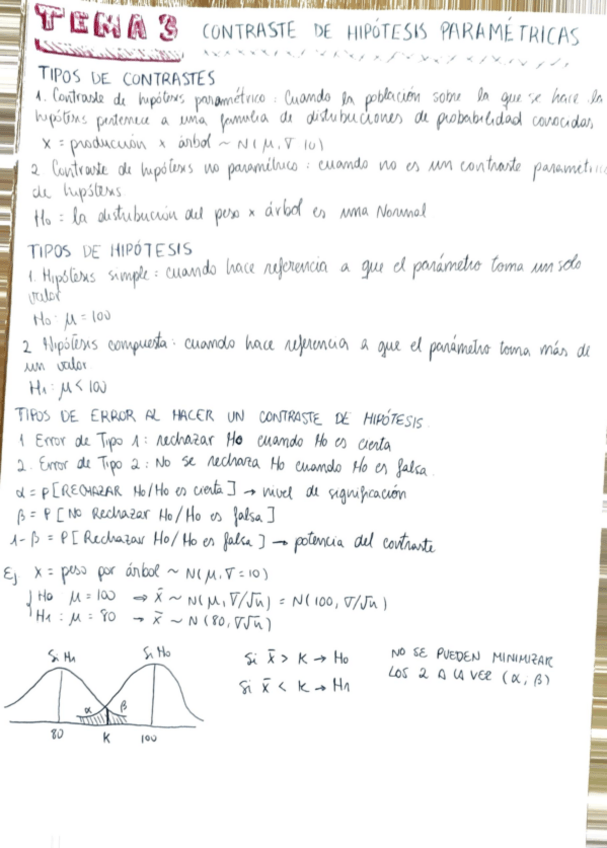 TEMA 3 CONTRASTE DE HIPÓTESIS PARAMÉTRICAS
TIPOS DE CONTRASTES
1. Contraste de hipótesis paramétrico: Cuando la población sobre la que se hace la
hipótesis pertenece a una familia de distribuciones de probabilidad conocidas,
X = producción x árbol ~ N(μ, σ 10)
2 Contraste de hipótesis no paramétrico: cuando no es un contraste paramétrico
de hipótesis
Ho = la distribución del peso x árbol es una Normal
TIPOS DE HIPÓTESIS
1. Hipótesis simple: cuando hace referencia a que el parámetro toma un solo
valor
Ho: μ = 100
2 Hipótesis compuesta: cuando hace referencia a que el parámetro toma más de
un valor.
H1: μ < 100
TIPOS DE ERROR AL HACER UN CONTRASTE DE HIPÓTESIS.
1 Error de Tipo 1: rechazar Ho cuando Ho es cierta
2. Error de Tipo 2: No se rechaza Ho cuando Ho es falsa.
α = P[RECHAZAR Ho/Ho es cierta] → nivel de significación
β = P[No Rechazar Ho/Ho es falsa]
1-β = P[Rechazar Ho/Ho es falsa] → potencia del contraste
Ej X = peso por árbol ~ N(μ, σ = 10)
Ho μ = 100 ⇒ x̄ ~ N(μ, σ/√n) = N(100, σ/√n)
H1: μ = 80 → x̄ ~ N(80, σ√n)
Si H1 Si Ho
α β
80 K 100
Si x̄ > K → Ho
Si x̄ < K → H1
NO SE PUEDEN MINIMIZAR
LOS 2 A LA VEZ (α, β)